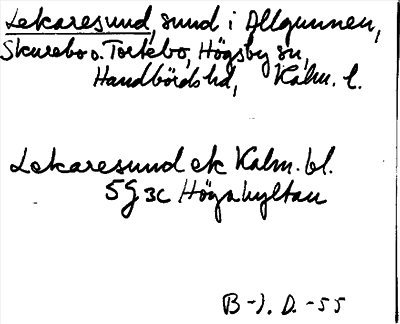 Lekaresund, sund i Allgunnen,
Skurebo o. Torkebo, Högsby sn,
Handbörds hd, Kalm. l.
Lekaresund ek Kalm. bl.
5G3c Högahyltan
B-J. D. -55